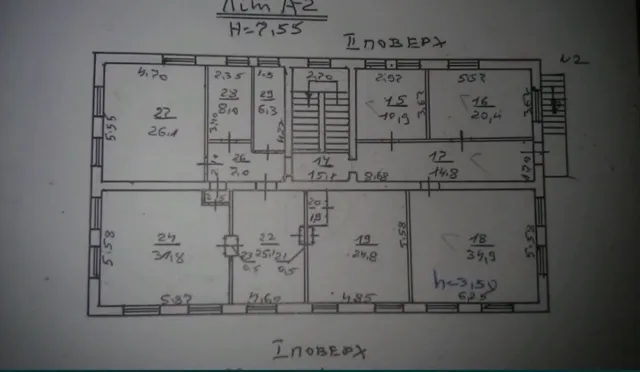 Літ А2
H=7,55
II ПОВЕРХ
N2
4.70
2.35
1.9
2.70
2.97
5.57
27
26.1
28
8.0
29
6.3
15
10.9
16
20.4
5.55
3.40
3.67
3.67
26
7.0
14
15.1
8.68
17
14.8
1.70
20
1.8
24
31.8
22
25.1
23
0.5
21
0.5
19
24.8
18
34.9
5.58
5.58
5.58
h=3,50
4.60
4.85
6.25
I ПОВЕРХ